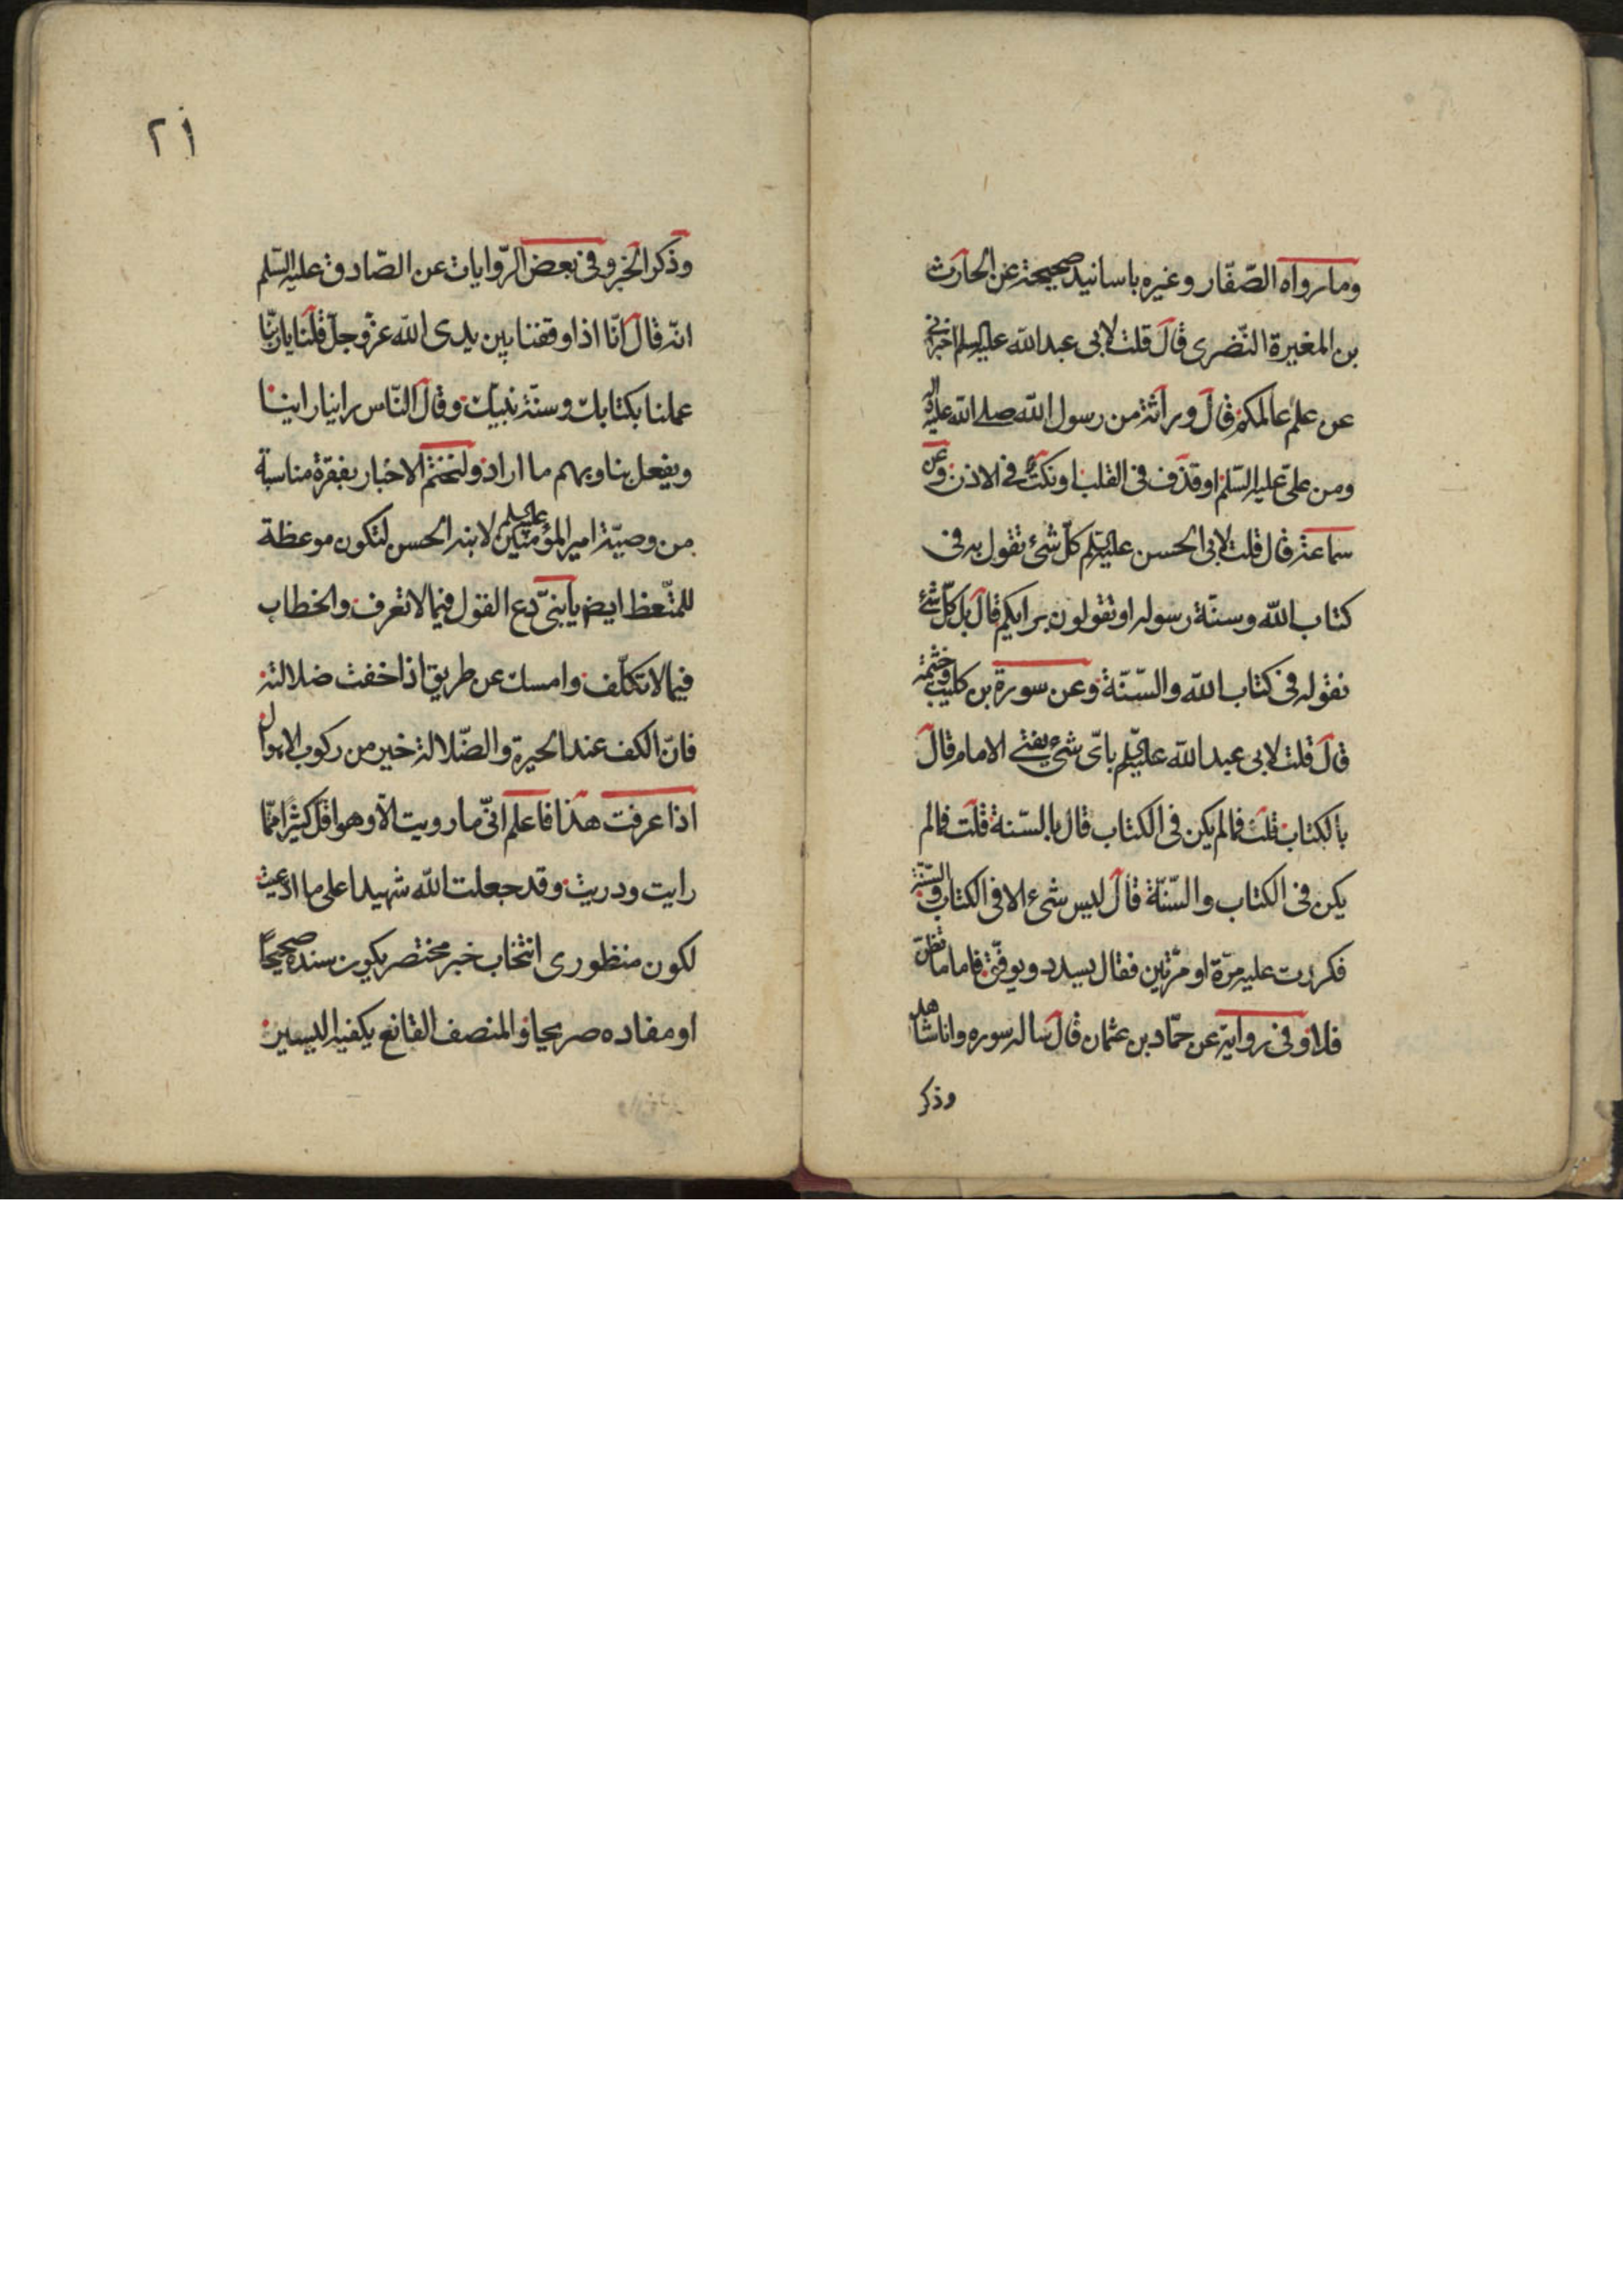 وما رواه الصّفّار وغيره باسانيد صحيحة عن الحارث
بن المغيرة النّضرى قال قلت لابى عبد الله عليه السلم اخبرنى
عن علم عالمكم قال وراثة من رسول الله صلى الله عليه واله
ومن علىّ عليه السّلم او قذف فى القلب او نكت فى الاذن وعن
سماعة قال قلت لابى الحسن عليه السلم كلّ شئ تقول به فى
كتاب الله وسنّة رسوله او تقولون برايكم قال بل كلّ شئ
نقوله فى كتاب الله والسّنّة وعن سورة بن كليب
قال قلت لابى عبد الله عليه السلم باىّ شئ يفتى الامام قال
بالكتاب قلت فما لم يكن فى الكتاب قال بالسّنة قلت فما لم
يكن فى الكتاب والسّنّة قال ليس شئ الا فى الكتاب والسّنّة
فكررت عليه مرّة او مرّتين فقال يسدد ويوفّق فاما ما تظنّ
فلا وفى رواية عن حمّاد بن عثمان قال ساله سوره وانا شاهد
وذكر
٢١
وذكر الخبر وفى بعض الرّوايات عن الصّادق عليه السّلم
انه قال انّا اذا وقفنا بين يدى الله عزّ وجلّ قلنا يا ربّنا
عملنا بكتابك وسنّة نبيّك وقال النّاس راينا راينا
ويفعل بنا وبهم ما اراد ولنختم الاخبار بفقرة مناسبة
من وصيّة امير المؤمنين عليه السلم لابنه الحسن لتكون موعظة
للمتّعظ ايض يا بنىّ دع القول فيما لا تعرف والخطاب
فيما لا تكلّف وامسك عن طريق اذا خفت ضلالته
فانّ الكف عند الحيرة والضّلالة خير من ركوب الاهوال
اذا عرفت هذا فاعلم انّى ما رويت الّا وهو اقل كثيرًا ممّا
رايت ودريت وقد جعلت الله شهيدا على ما ادّعيت
لكون منظورى انتخاب خبر مختصر يكون سنده صحيحًا
او مفاده صريحا والمنصف القانع يكفيه اليسير